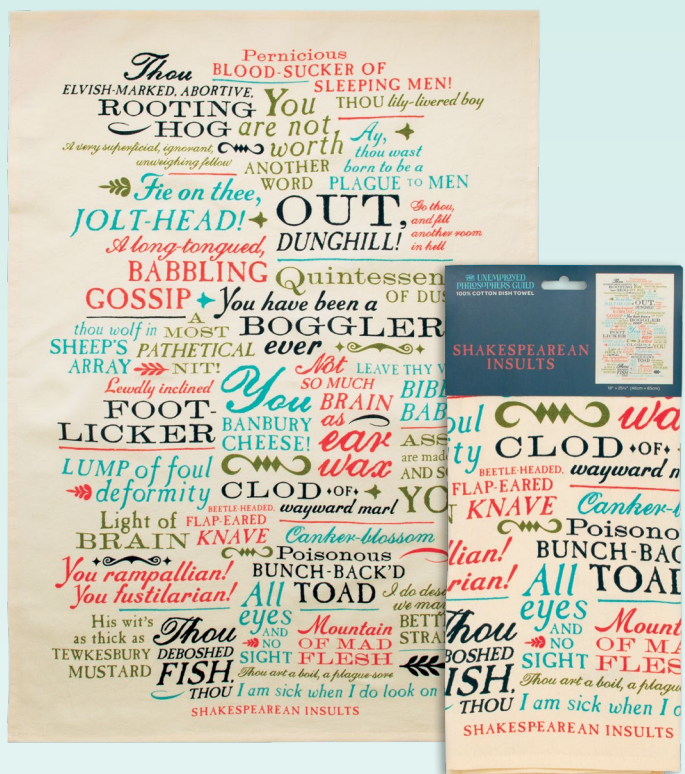 Pernicious
Thou BLOOD-SUCKER OF
SLEEPING MEN!
ELVISH-MARKED, ABORTIVE,
ROOTING
HOG
You
are not
worth
ANOTHER
WORD
THOU lily-livered boy
A very superficial, ignorant,
unweighing fellow
Ay,
thou wast
born to be a
PLAGUE TO MEN
Fie on thee,
JOLT-HEAD!
OUT,
DUNGHILL!
Go thou,
and fill
another room
in hell
A long-tongued,
BABBLING
GOSSIP
Quintessen
OF DUS
You have been a
BOGGLER
ever
thou wolf in
SHEEP'S
ARRAY
A
MOST
PATHETICAL
NIT!
Lewdly inclined
FOOT-
LICKER
You
BANBURY
CHEESE!
Not
SO MUCH
BRAIN
as
ear
wax
LEAVE THY V
BIBB
BAB
ASS
are made
AND SO
YO
LUMP of foul
deformity
CLOD OF
wayward marl
Light of
BRAIN
BEETLE-HEADED,
FLAP-EARED
KNAVE
Canker-blossom
Poisonous
BUNCH-BACK'D
TOAD
You rampallian!
You fustilarian!
All
eyes
AND
NO
SIGHT
I do desi
we may
BETT
STRA
His wit's
as thick as
TEWKESBURY
MUSTARD
Thou
DEBOSHED
FISH,
THOU
Mountain
OF MAD
FLESH
Thou art a boil, a plague-sore
I am sick when I do look on
SHAKESPEAREAN INSULTS
THE UNEMPLOYED
PHILOSOPHERS GUILD
100% COTTON DISH TOWEL
SHAKESPEAREAN
INSULTS
wa
oul
ity
CLOD OF
wayward m
BEETLE-HEADED,
FLAP-EARED
KNAVE
Canker-b
Poisono
BUNCH-BAC
TOAD
llian!
rian!
All
eyes
AND
NO
SIGHT
Thou
BOSHED
ISH,
THOU
Mount
OF MA
FLES
Thou art a boil, a plagu
I am sick when I d
SHAKESPEAREAN INSULTS